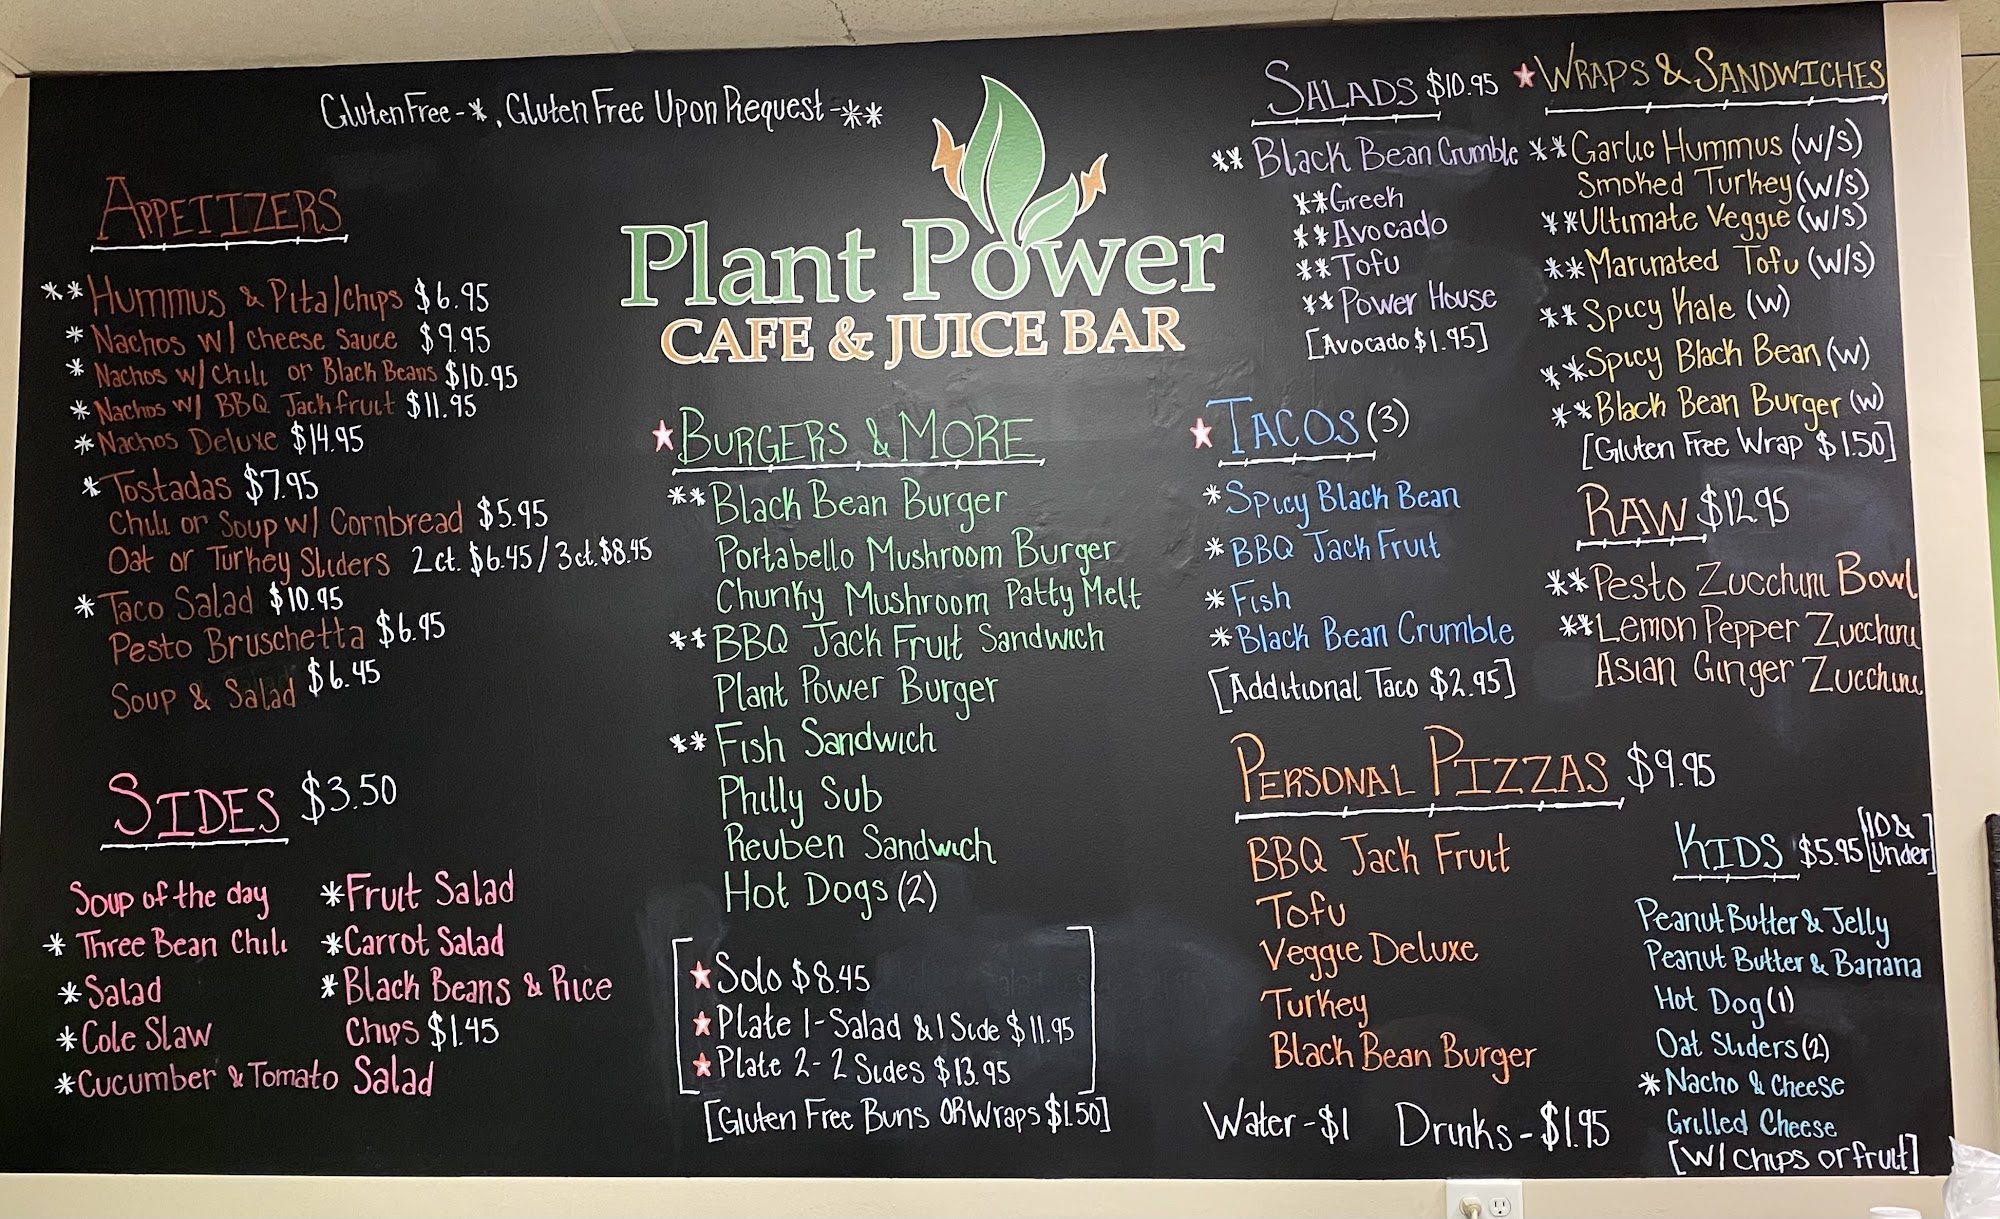 Gluten Free - *, Gluten Free Upon Request - **
Plant Power
CAFE & JUICE BAR
APPETIZERS
** Hummus & Pita/chips $6.95
* Nachos w/ cheese sauce $9.95
* Nachos w/ chili or Black Beans $10.95
* Nachos w/ BBQ Jackfruit $11.95
* Nachos Deluxe $14.95
* Tostadas $7.95
Chili or Soup w/ Cornbread $5.95
Oat or Turkey Sliders 2ct. $6.45 / 3ct. $8.45
* Taco Salad $10.95
Pesto Bruschetta $6.95
Soup & Salad $6.45
SIDES $3.50
Soup of the day
* Three Bean Chili
* Salad
* Cole Slaw
* Cucumber & Tomato Salad
* Fruit Salad
* Carrot Salad
* Black Beans & Rice
Chips $1.45
★ BURGERS & MORE
** Black Bean Burger
Portabello Mushroom Burger
Chunky Mushroom Patty Melt
** BBQ Jack Fruit Sandwich
Plant Power Burger
** Fish Sandwich
Philly Sub
Reuben Sandwich
Hot Dogs (2)
★ Solo $8.45
★ Plate 1 - Salad & 1 Side $11.95
★ Plate 2 - 2 Sides $13.95
[Gluten Free Buns OR Wraps $1.50]
SALADS $10.95
** Black Bean Crumble
** Greek
** Avocado
** Tofu
** Power House
[Avocado $1.95]
★ TACOS (3)
* Spicy Black Bean
* BBQ Jack Fruit
* Fish
* Black Bean Crumble
[Additional Taco $2.95]
★ WRAPS & SANDWICHES
** Garlic Hummus (w/s)
Smoked Turkey (w/s)
** Ultimate Veggie (w/s)
** Marinated Tofu (w/s)
** Spicy Kale (w)
** Spicy Black Bean (w)
** Black Bean Burger (w)
[Gluten Free Wrap $1.50]
RAW $12.95
** Pesto Zucchini Bowl
** Lemon Pepper Zucchini
Asian Ginger Zucchini
PERSONAL PIZZAS $9.95
BBQ Jack Fruit
Tofu
Veggie Deluxe
Turkey
Black Bean Burger
Water - $1 Drinks - $1.95
KIDS $5.95 [10 & Under]
Peanut Butter & Jelly
Peanut Butter & Banana
Hot Dog (1)
Oat Sliders (2)
* Nacho & Cheese
Grilled Cheese
[w/ chips or fruit]